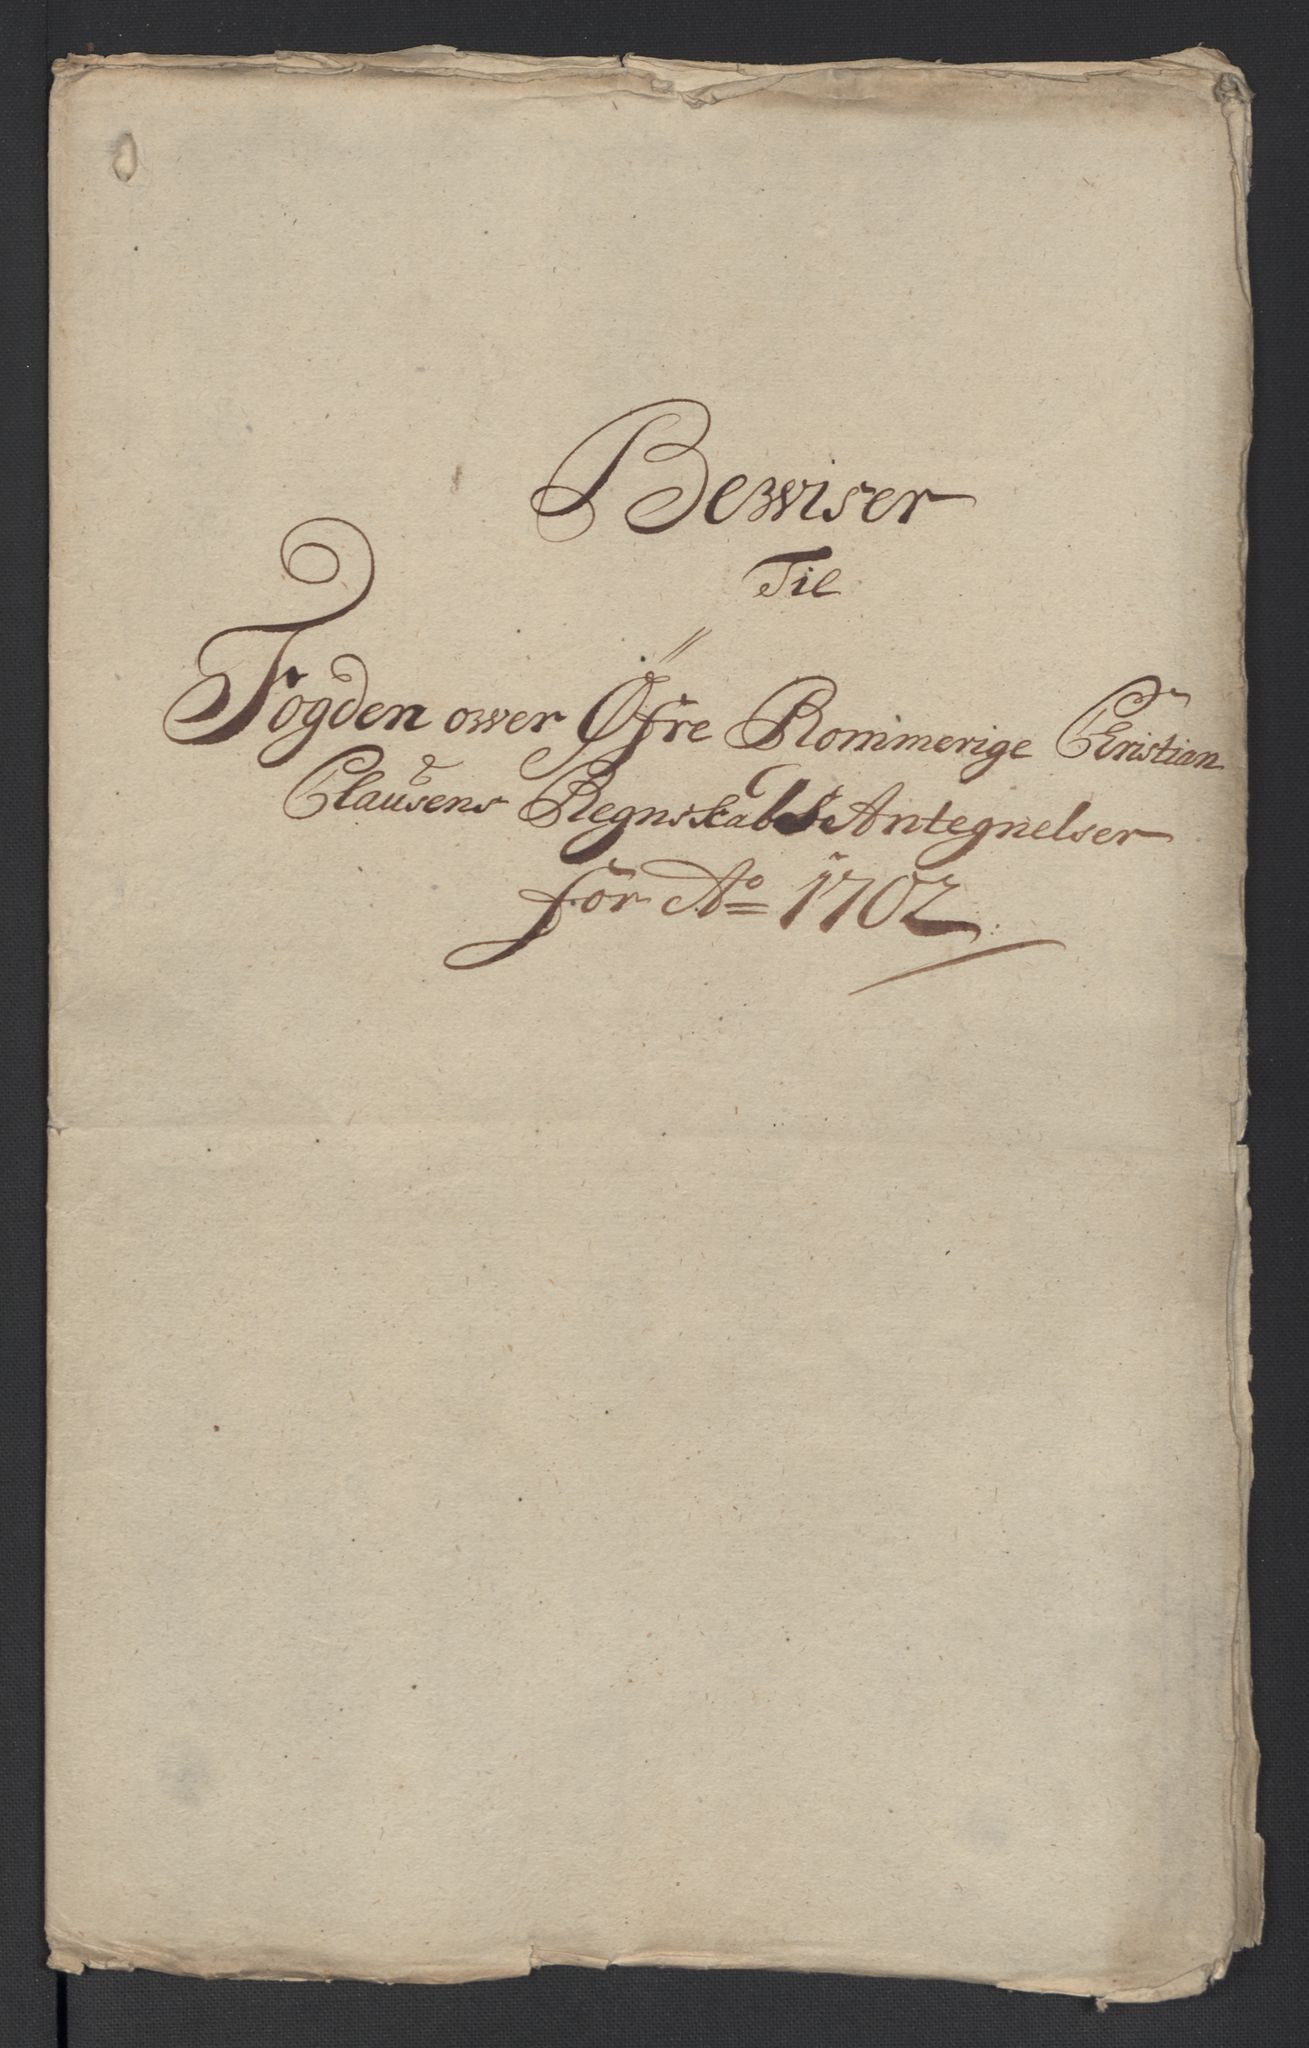 Bewiser
Til
Fogden ower Øfre Rommerige Christian
Clausens Regnskabs Antegnelser
for Ao 1702